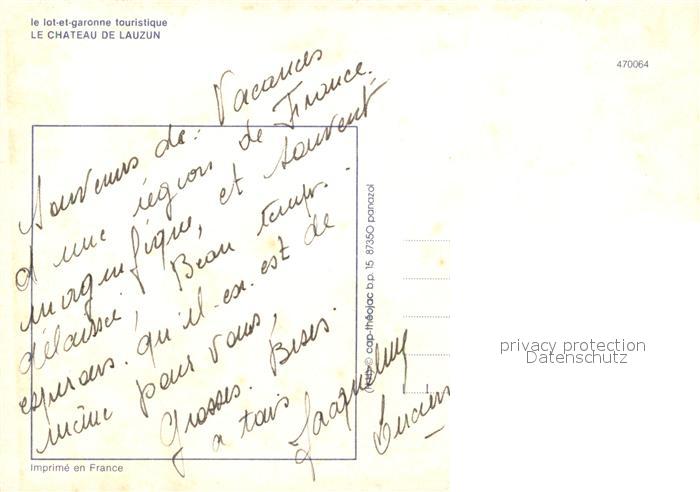 le lot-et-garonne touristique
LE CHATEAU DE LAUZUN
470064
Souvenirs de. Vacances
d'une région de France.
magnifique, et souvent
délaissé, Beau temps.
esperons. qu'il-en-est de
même pour vous,
Grosses. Bises.
a tous
Jacqueline
Lucien
cap-théojac b.p. 15 87350 panazol
privacy protection
Datenschutz
Imprimé en France